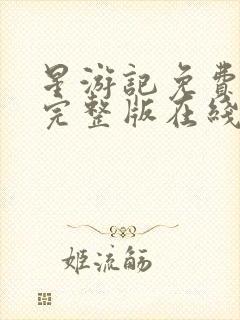 星游記免費
完整版在綫
姬流觞